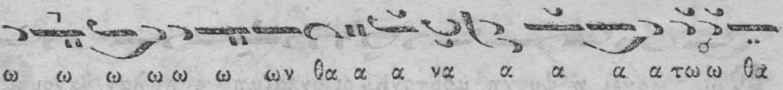 ω ω ω ω ω ω ων θα α α να α α α α τω ω θα